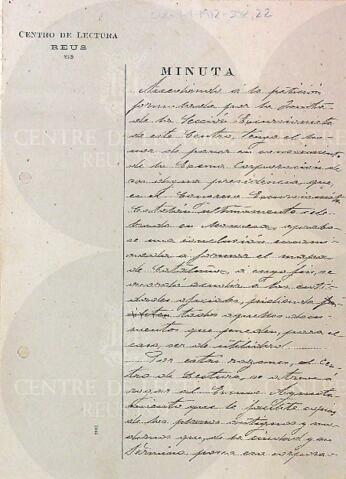 CENTRO DE LECTURA
REUS
MINUTA
Accediendo á la petición
formulada por la Junta
de la Sección Excursionista
de este Centro, tengo el ho-
nor de poner en conocimiento
de la Excma Corporación de
su digna presidencia, que,
en el Congreso Excursionista
Catalán últimamente cele-
brado en Manresa, aprobó-
se una conclusión encami-
nada á formar el mapa
de Catalunya, á cuyo fin, se
acordó acudir á las enti-
dades oficiales, pidiendo
todos aquellos docu-
mentos que puedan, para el
caso, ser de utilidad.
Por estas razones, el Cen-
tro de Lectura, se atreve á
rogar al Excmo Ayunta-
miento que le facilite copia
de los planos antiguos y mo-
dernos que, de la ciudad y su
término posea esa corpora-
CENTRE DE LECTURA
REUS